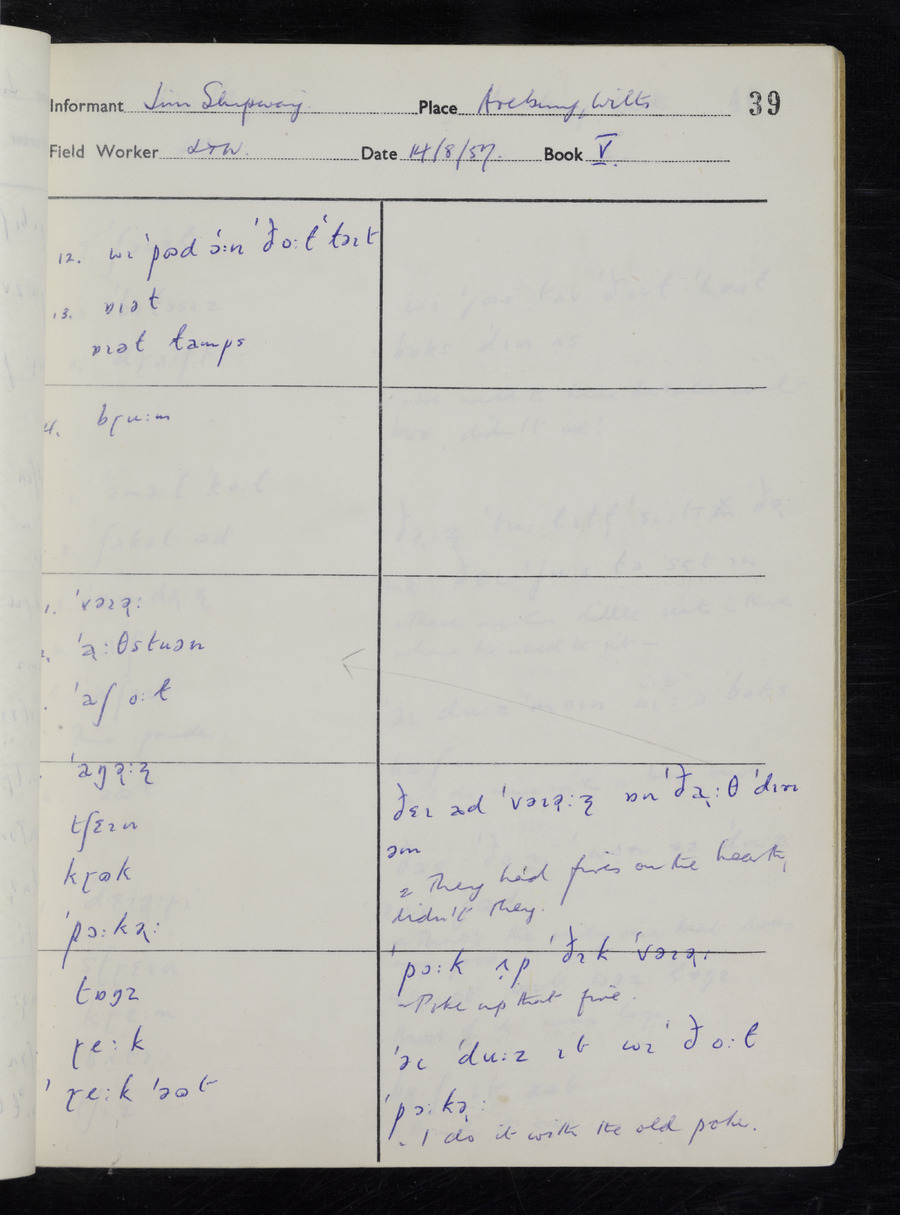 Informant Jim Shipway Place Avebury, Wilts 39
Field Worker Date 14/8/57. Book V.
12. wɪ ˈpəd ɔ:n ˈðo:ɫ ˈtəɪt
13. ɒɪət
ɒɪət tamps
4. bɽu:m
1. ˈvəɪə̢:
ˈə̢:θstuən
ˈaʃ o:ɫ
ˈaŋə̢:z̢
tʃɛɪn
kɽək
ˈpɔ:kə̢:
tɒŋz
ɽe:k
ˈɽe:k ˈəʊt
ðɛɪ əd ˈvəɪə̢:z̢ ɒn ˈðə̢:θ ˈdɪn
əm
~ They had fires on the hearth,
didn't they.
ˈpɔ:k ʌp ˈðɪk ˈvəɪə̢:
~ Poke up that fire.
ˈəɪ ˈdu:z ɪt wɪ ˈðo:ɫ
ˈpɔ:kə̢:
~ I do it with the old poker.